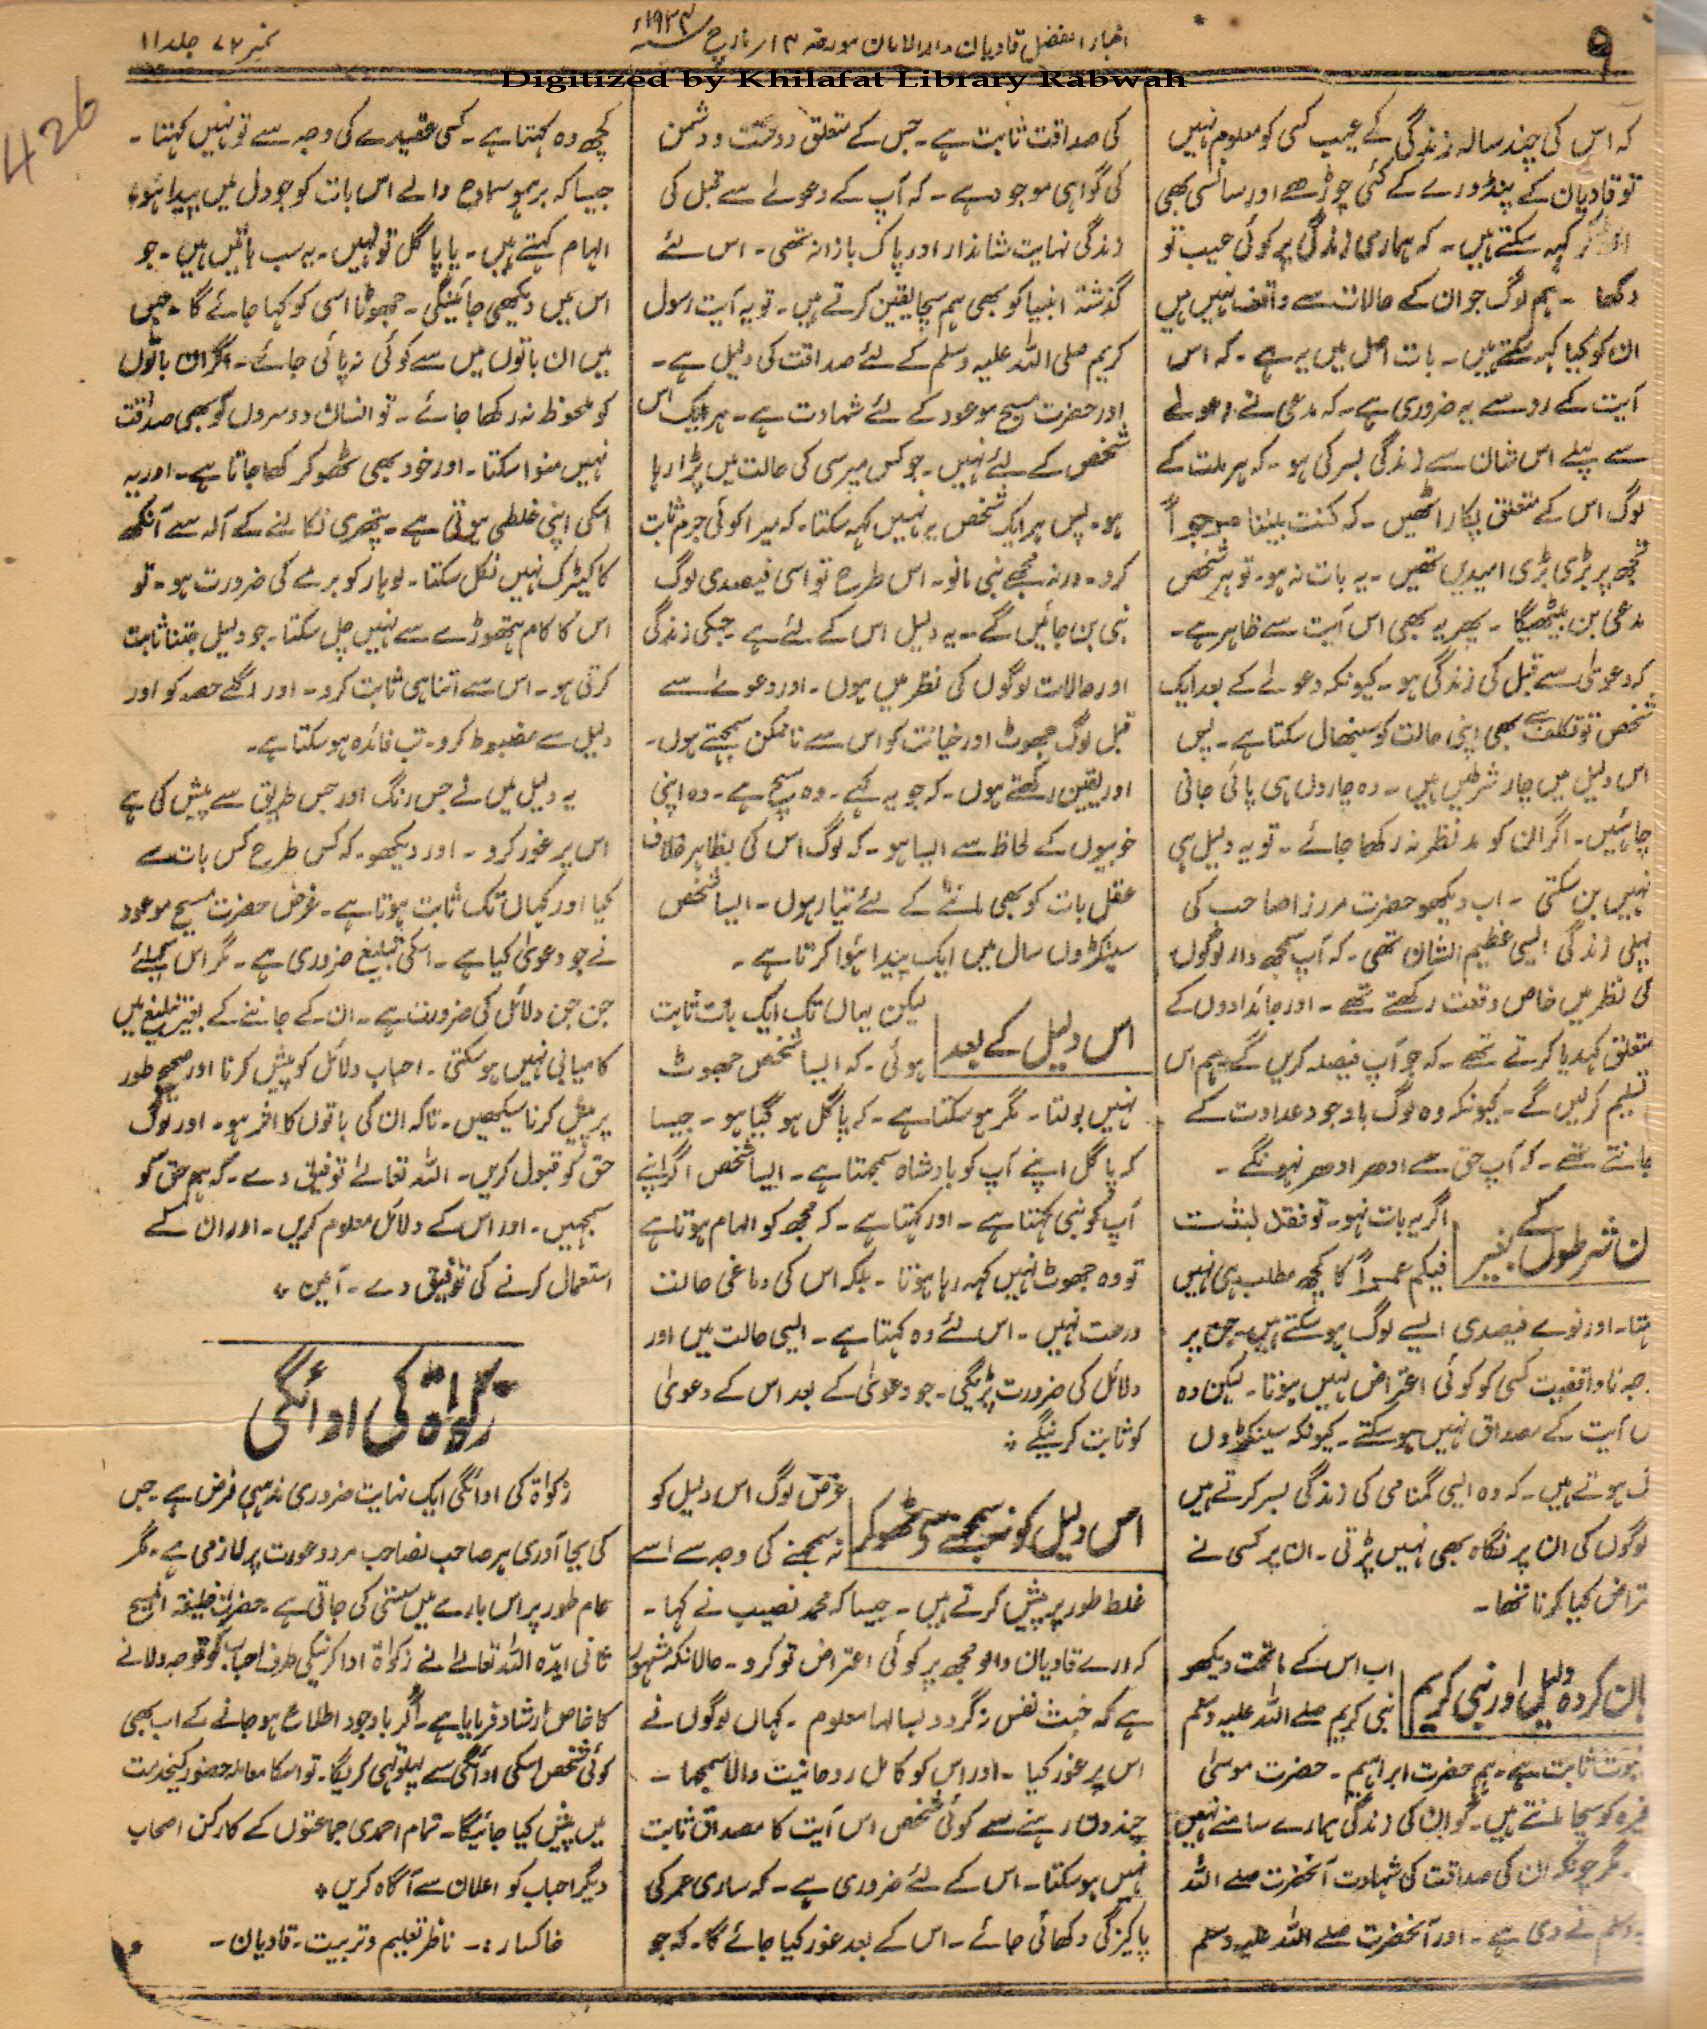 ۹
اخبار الفضل قادیان دارالامان مورخہ ۱۴ مارچ سنہ ۱۹۲۴ء
نمبر ۷۲ جلد ۱۱
Digitized by Khilafat Library Rabwah
426
کہ اس کی چند سالہ زندگی کے عیب کسی کو معلوم نہیں
تو قادیان کے پنڈورے کے کئی چوڑھے اور سانسی بھی
کہہ سکتے ہیں۔ کہ ہماری زندگی پر کوئی عیب تو
دکھا ۔ ہم لوگ جو ان کے حالات سے واقف نہیں ہیں
ان کو کیا کہہ سکتے ہیں۔ بات اصل میں یہ ہے۔ کہ اس
آیت کے رو سے یہ ضروری ہے۔ کہ مدعی نے دعوےٰ
سے پہلے اس شان سے زندگی بسر کی ہو۔ کہ ہر ملت کے
لوگ اس کے متعلق پکار اٹھیں۔ کہ کنت بیننا مرجواً
تجھ پر بڑی بڑی امیدیں تھیں۔ یہ بات نہ ہو۔ تو ہر شخص
مدعی بن بیٹھیگا۔ پھر یہ بھی اس آیت سے ظاہر ہے۔
کہ دعویٰ سے قبل کی زندگی ہو۔ کیونکہ دعوےٰ کے بعد ایک
شخص تو تکلف سے بھی اپنی حالت کو سنبھال سکتا ہے۔ پس
اس دلیل میں چار شرطیں ہیں۔ وہ چاروں ہی پائی جانی
چاہئیں۔ اگر ان کو مد نظر نہ رکھا جائے۔ تو یہ دلیل ہی
نہیں بن سکتی۔ اب دیکھو حضرت مرزا صاحب کی
پہلی زندگی ایسی عظیم الشان تھی۔ کہ آپ سمجھ دار لوگوں
کی نظر میں خاص وقعت رکھتے تھے۔ اور جائدادوں کے
متعلق کہدیا کرتے تھے۔ کہ جو آپ فیصلہ کریں گے ہم اس
تسلیم کرلیں گے۔ کیونکہ وہ لوگ باوجود عداوت کے
جانتے تھے۔ کہ آپ حق سے ادھر ادھر نہونگے۔
ان شرطوں کے بغیر
اگر یہ بات نہو۔ تو فقد لبثت
فیکم عمراً کا کچھ مطلب ہی نہیں
اور نوے فیصدی ایسے لوگ ہوسکتے ہیں۔ جن پر
ناواقفیت کسی کو کوئی اعتراض نہیں ہوتا۔ لیکن وہ
آیت کے مصداق نہیں ہوسکتے۔ کیونکہ سینکڑوں
ہوتے ہیں۔ کہ وہ ایسی گمنامی کی زندگی بسر کرتے ہیں
لوگوں کی ان پر نگاہ بھی نہیں پڑتی۔ ان پر کسی نے
کیا کرنا تھا۔
کردہ دلیل اور نبی کریم
اب اس کے ماتحت دیکھو
نبی کریم صلے اللہ علیہ وسلم
ثابت ہے۔ ہم حضرت ابراہیم۔ حضرت موسیٰ
کو سچا مانتے ہیں۔ گو ان کی زندگی ہمارے سامنے نہیں
مگر چونکہ ان کی صداقت کی شہادت آنحضرت صلے اللہ
وسلم نے دی ہے۔ اور آنحضرت صلے اللہ علیہ وسلم
کی صداقت ثابت ہے۔ جس کے متعلق دوست و دشمن
کی گواہی موجود ہے۔ کہ آپ کے دعوےٰ سے قبل کی
زندگی نہایت شاندار اور پاک بازانہ تھی۔ اس لئے
گذشتہ انبیا کو بھی ہم سچا یقین کرتے ہیں۔ تو یہ آیت رسول
کریم صلی اللہ علیہ وسلم کے لئے صداقت کی دلیل ہے۔
اور حضرت مسیح موعود کے لئے شہادت ہے۔ ہر ایک اس
شخص کے لئے نہیں۔ جو کس مپرسی کی حالت میں پڑا رہا
ہو۔ پس ہر ایک شخص یہ نہیں کہہ سکتا۔ کہ میرا کوئی جرم ثابت
کرو۔ ورنہ مجھے نبی مانو۔ اس طرح تو اسی فیصدی لوگ
نبی بن جائیں گے۔ یہ دلیل اس کے لئے ہے۔ جسکی زندگی
اور حالات لوگوں کی نظر میں ہوں۔ اور دعوےٰ سے
قبل لوگ جھوٹ اور خیانت کو اس سے ناممکن سمجھتے ہوں۔
اور یقین رکھتے ہوں۔ کہ جو یہ کہے۔ وہ سچ ہے۔ وہ اپنی
خوبیوں کے لحاظ سے ایسا ہو۔ کہ لوگ اس کی بظاہر خلاف
عقل بات کو بھی ماننے کے لئے تیار ہوں۔ ایسا شخص
سینکڑوں سال میں ایک پیدا ہوا کرتا ہے۔
اس دلیل کے بعد
لیکن یہاں تک ایک بات ثابت
ہوئی۔ کہ ایسا شخص جھوٹ
نہیں بولتا۔ مگر ہوسکتا ہے۔ کہ پاگل ہو گیا ہو۔ جیسا
کہ پاگل اپنے آپ کو بادشاہ سمجھتا ہے۔ ایسا شخص اگر اپنے
آپ کو نبی کہتا ہے۔ اور کہتا ہے۔ کہ مجھ کو الہام ہوتا ہے
تو وہ جھوٹ نہیں کہہ رہا ہوتا۔ بلکہ اس کی دماغی حالت
درست نہیں۔ اس لئے وہ کہتا ہے۔ ایسی حالت میں اور
دلائل کی ضرورت پڑیگی۔ جو دعویٰ کے بعد اس کے دعویٰ
کو ثابت کرینگے ؞
اس دلیل کو نہ سمجھنے سے ٹھوکر
غرض لوگ اس دلیل کو
نہ سمجھنے کی وجہ سے اسے
غلط طور پر پیش کرتے ہیں۔ جیسا کہ محمد نصیب نے کہا۔
کہ ارے قادیان والو مجھ پر کوئی اعتراض تو کرو۔ حالانکہ مشہور
ہے کہ خبث نفس نگردد بسالہا معلوم۔ کہاں لوگوں نے
اس پر غور کیا۔ اور اس کو کامل روحانیت والا سمجھا۔
چند دن رہنے سے کوئی شخص اس آیت کا مصداق ثابت
نہیں ہوسکتا۔ اس کے لئے ضروری ہے۔ کہ ساری عمر کی
پاکیزگی دکھائی جائے۔ اس کے بعد غور کیا جائے گا۔ کہ جو
کچھ وہ کہتا ہے۔ کسی عقیدے کی وجہ سے تو نہیں کہتا۔
جیسا کہ برہمو سماج والے اس بات کو جو دل میں پیدا ہو
الہام کہتے ہیں۔ یا پاگل تو نہیں۔ یہ سب باتیں ہیں۔ جو
اس میں دیکھی جائینگی۔ جھوٹا اسی کو کہا جائے گا۔ جس
میں ان باتوں میں سے کوئی نہ پائی جائے۔ اگر ان باتوں
کو ملحوظ نہ رکھا جائے۔ تو انسان دوسروں کو بھی صداقت
نہیں منوا سکتا۔ اور خود بھی ٹھوکر کھا جاتا ہے۔ اور یہ
اسکی اپنی غلطی ہوتی ہے۔ پتھری نکالنے کے آلہ سے آنکھ
کا کیٹرک نہیں نکل سکتا۔ لوہار کو برمے کی ضرورت ہو۔ تو
اس کا کام ہتھوڑے سے نہیں چل سکتا۔ جو دلیل جتنا ثابت
کرتی ہو۔ اس سے اتنا ہی ثابت کرو۔ اور اگلے حصہ کو اور
دلیل سے مضبوط کرو۔ تب فائدہ ہوسکتا ہے۔
یہ دلیل میں نے جس رنگ اور جس طریق سے پیش کی ہے
اس پر غور کرو۔ اور دیکھو۔ کہ کس طرح کس بات سے
کیا اور کہاں تک ثابت ہوتا ہے۔ غرض حضرت مسیح موعود
نے جو دعویٰ کیا ہے۔ اسکی تبلیغ ضروری ہے۔ مگر اس کیلئے
جن جن دلائل کی ضرورت ہے۔ ان کے جاننے کے بغیر تبلیغ میں
کامیابی نہیں ہوسکتی۔ احباب دلائل کو پیش کرنا اور صحیح طور
پر پیش کرنا سیکھیں۔ تاکہ ان کی باتوں کا اثر ہو۔ اور لوگ
حق کو قبول کریں۔ اللہ تعالےٰ توفیق دے۔ کہ ہم حق کو
سمجھیں۔ اور اس کے دلائل معلوم کریں۔ اور ان کے
استعمال کرنے کی توفیق دے۔ آمین ؞
زکوٰۃ کی ادائگی
زکوٰۃ کی ادائگی ایک نہایت ضروری مذہبی فرض ہے۔ جس
کی بجا آوری ہر صاحب نصاب مرد و عورت پر لازمی ہے۔ مگر
عام طور پر اس بارے میں سستی کی جاتی ہے۔ حضرت خلیفۃ المسیح
ثانی ایدہ اللہ تعالےٰ نے زکوٰۃ ادا کرنیکی طرف احباب کو توجہ دلانے
کا خاص ارشاد فرمایا ہے۔ اگر باوجود اطلاع ہو جانے کے اب بھی
کوئی شخص اسکی ادائگی سے پہلوتہی کریگا۔ تو اسکا معاملہ حضور کیخدمت
میں پیش کیا جائیگا۔ تمام احمدی جماعتوں کے کارکن اصحاب
دیگر احباب کو اعلان سے آگاہ کریں ؞
خاکسار:۔ ناظر تعلیم و تربیت۔ قادیان۔